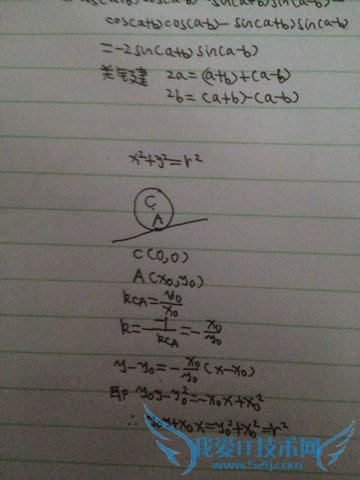 cos(a+b)cos(a-b)- sin(a+b)sin(a-b)
=-2sin(a+b)sin(a-b)
关键 2a=(a+b)+(a-b)
2b=(a+b)-(a-b)
x²+y²=r²
C
A
C(0,0)
A(x₀,y₀)
k_CA=y₀/x₀
k=-1/k_CA=-x₀/y₀
y-y₀=-x₀/y₀(x-x₀)
即 y₀y-y₀²=-x₀x+x₀²
∴ y₀y+x₀x=y₀²+x₀²=r²
我爱IT技术网
www.52ij.com